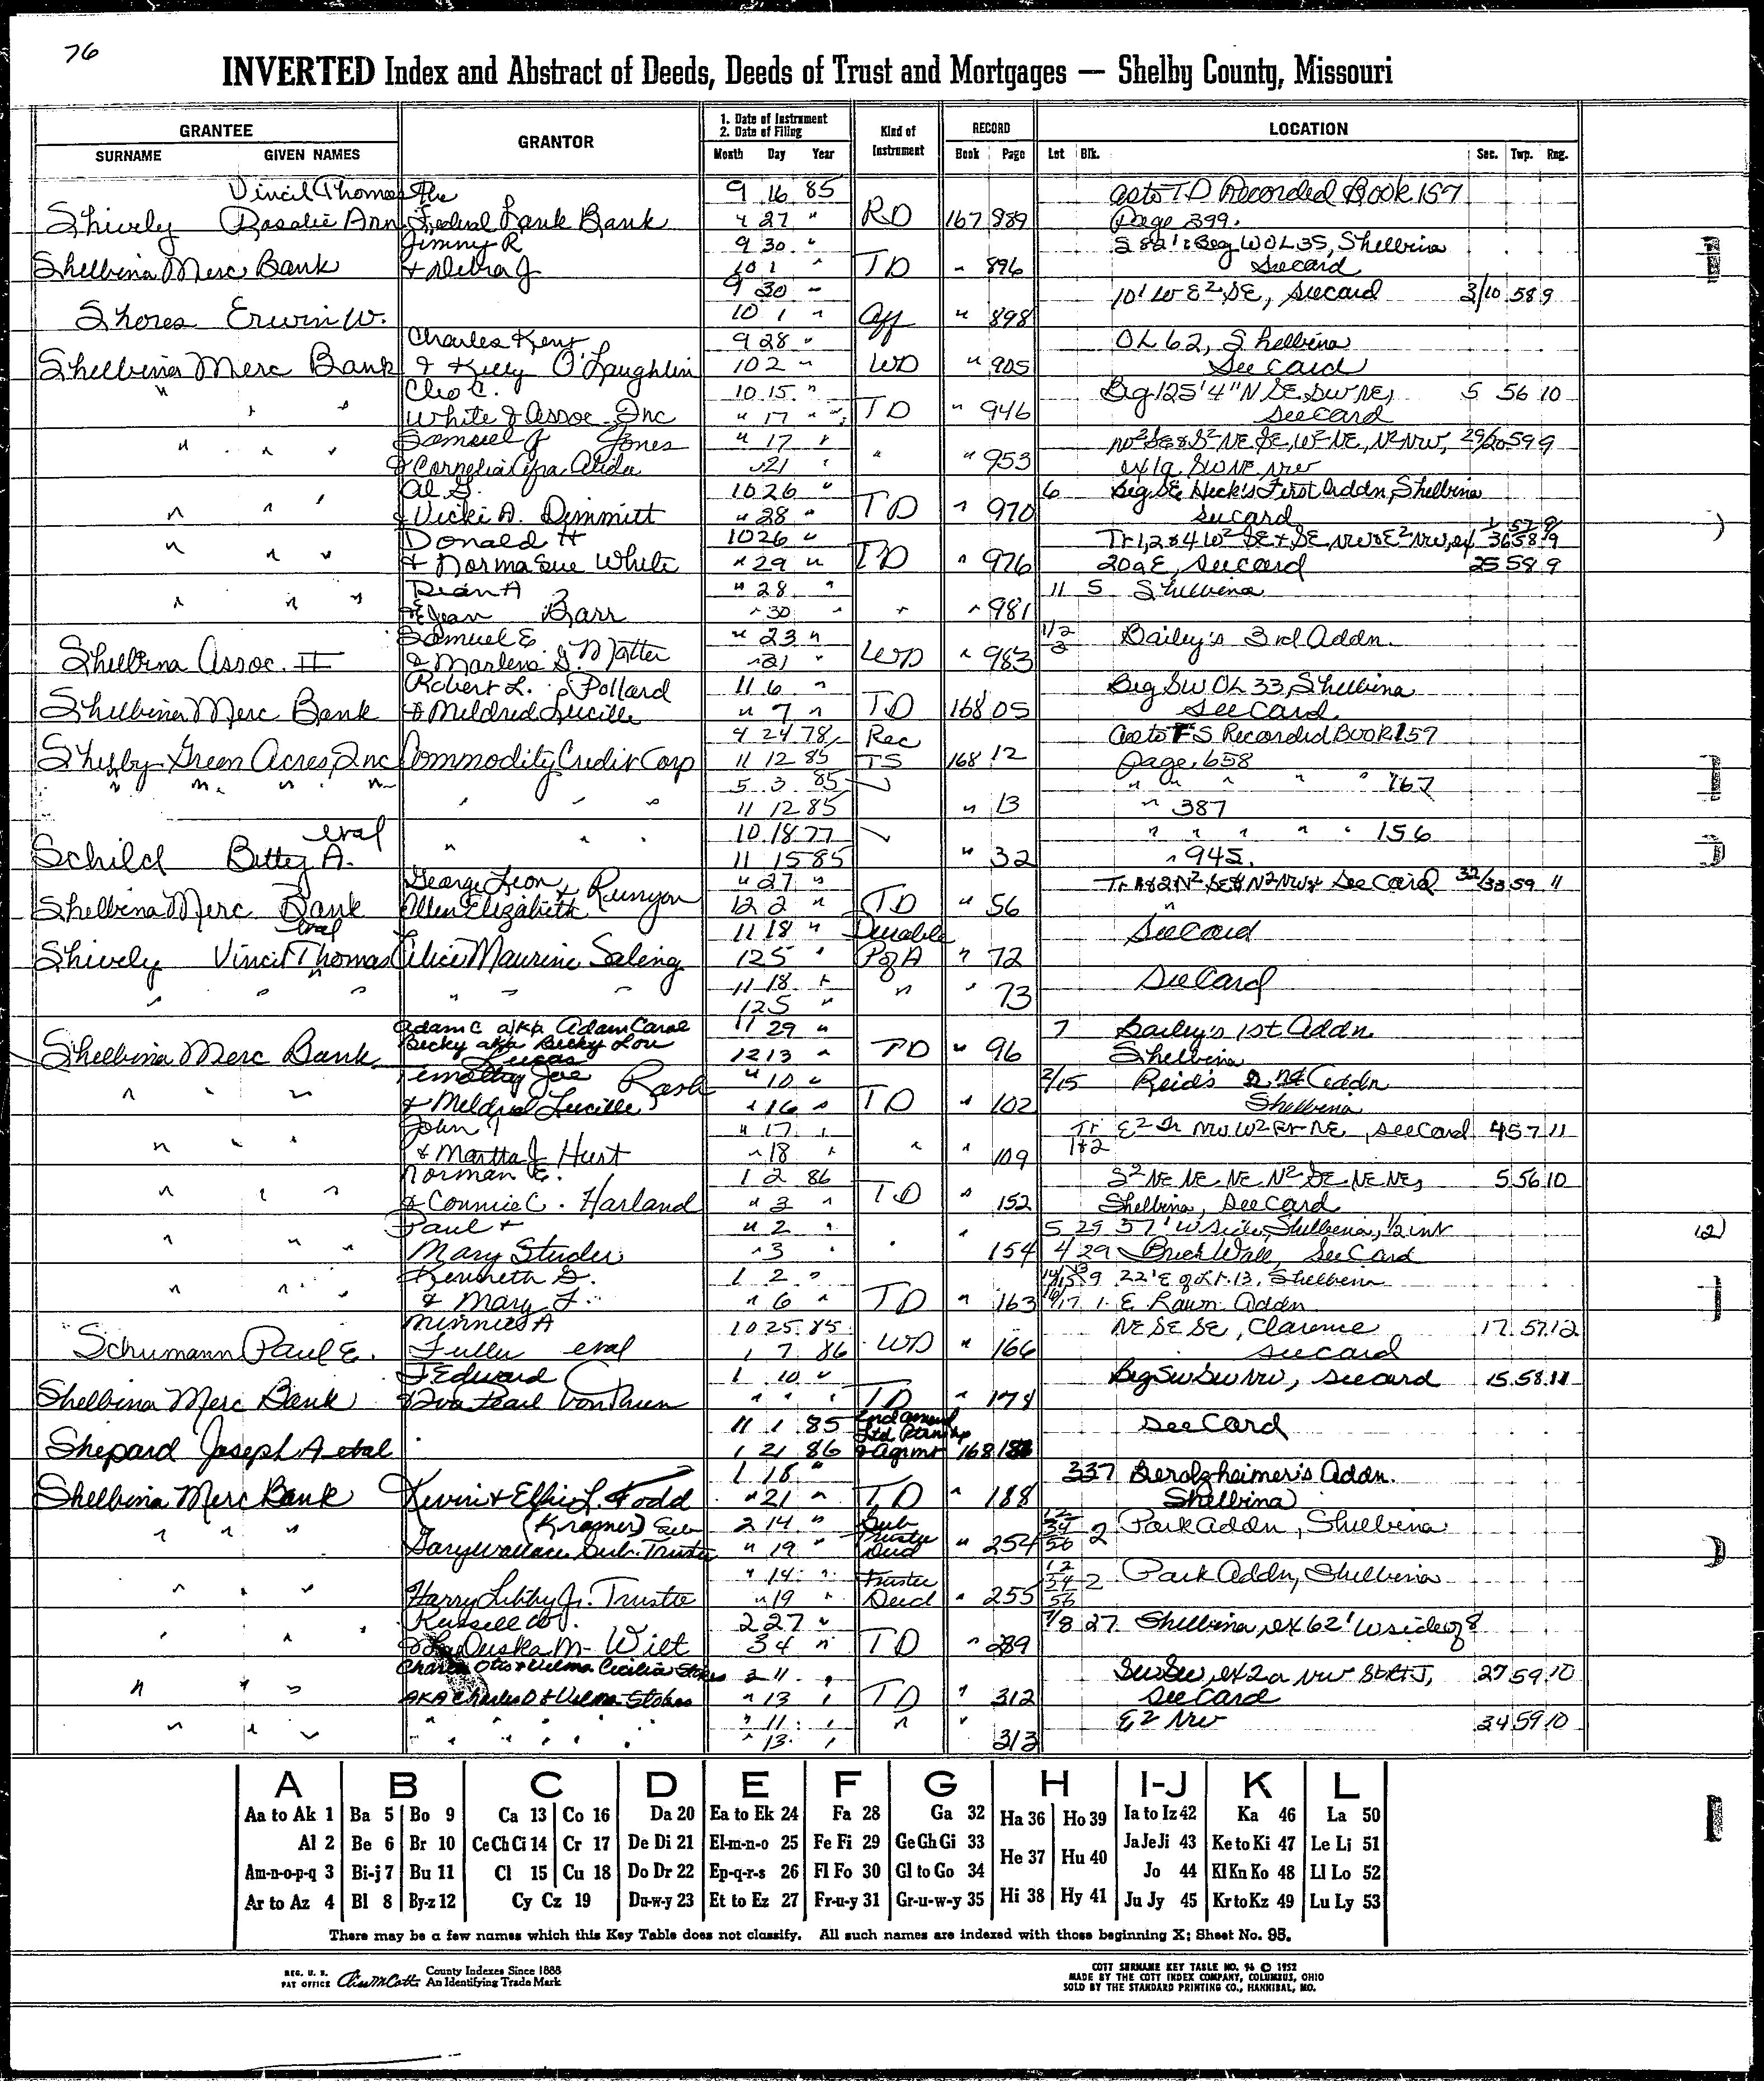 76
INVERTED Index and Abstract of Deeds, Deeds of Trust and Mortgages — Shelby County, Missouri
GRANTEE GRANTOR 1. Date of Instrument Kind of RECORD LOCATION
2. Date of Filing Instrument
SURNAME GIVEN NAMES Month Day Year Book Page Lot Blk. Sec. Twp. Rng.
Vincil Thomas The 9 16 85 as to TD Recorded Book 157
Shively Rosalie Ann Federal Land Bank " 27 " RD 167 889 Page 399.
Jimmy R 9 30 " Beg WOL 35, Shelbina
Shelbina Merc Bank & Debra J 10 1 " TD " 896 See card
9 30 " 10' W E² SE, see card 3/10 58 9
Shores Erwin W. 10 1 " Aff " 898
Charles Kent 9 28 " OL 62, Shelbina
Shelbina Merc Bank & Kelly O'Laughlin 10 2 " WD " 905 See Card
Cleo C. 10 15 " Beg 125' 4" N SE, SW NE, 5 56 10
" " " White & Assoc. Inc " 17 " TD " 946 see card
Samuel J Jones " 17 " W² SE & S² NE SE, W² NE, N² NW, 29/20 59 9
" " " & Cornelia Alida " 21 " " " 953 ex 1a SW NE NW
Al G. 10 26 " 6 Beg SE, Heck's First Addn, Shelbina
" " " & Vicki A. Dimmitt " 28 " TD " 970 see card
Donald H 10 26 " Tr 1, 2 & 4 W² SE & SE, NW & E² NW, ex 36 58 9
" " " & Norma Sue White " 29 " TD " 976 20a E, see card 25 58 9
Dean A " 28 " 11 5 Shelbina
" " " & E Jean Barr " 30 " " " 981
Samuel E " 23 " 1/2 Bailey's 3rd Addn.
Shelbina Assoc. II & Marlene G. Matter " 31 " WD " 983 3
Robert L. Pollard 11 6 " Beg SW OL 33, Shelbina
Shelbina Merc Bank & Mildred Lucille " 7 " TD 168 05 See Card
4 24 78 Rec as to FS Recorded Book 159
Shelby Green Acres, Inc Commodity Credit Corp 11 12 85 TS 168 12 page 658
" " " " 5 3 85 " " " " " 167
" " " 11 12 85 " 13 " 387
etal 10 18 77 " " " " " 156
Schild Betty A. " " " 11 15 85 " 32 " 945.
George Leon " 27 " Tr 1 & 2 N² SE & N² NW & See Card 32/33 59 11
Shelbina Merc Bank & Ellen Elizabeth Runyon 12 2 " TD " 56
etal 11 18 " Durable See Card
Shively Vincil Thomas Alice Maurine Saling 12 5 " P of A " 72
11 18 " See Card
" " " " " " 12 5 " " " 73
Adam C a/k/a Adam Carol 11 29 " 7 Bailey's 1st Addn.
Becky aka Becky Lou
Shelbina Merc Bank Lucas 12 13 " TD " 96 Shelbina
Timothy Joe Rash " 10 " 2/15 Reid's 2nd Addn
" " " & Mildred Lucille " 16 " TD " 102 Shelbina
John T " 17 " Tr E² NW W² NE, see Card 4 57 11
" " " & Martha J Hurt " 18 " " " 109 1&2
Norman E. 1 2 86 S² NE NE, NE N² SE, NE NE, 5 56 10
" " " & Connie C. Harland " 3 " TD " 152 Shelbina, See Card
Paul & " 2 " 5 29 57' W side, Shelbina, 1/2 int
" " " Mary Studer " 3 " " " 154 4 29 Brick Wall, See Card
Kenneth G. 1 2 " 9 22' E of Lt. 13, Shelbina
" " " & Mary F. " 6 " TD " 163 16/17 1 E Rawn Addn
Minnie A 10 25 85 NE SE SE, Clarence 17 57 12
Schumann Paul E. Fuller etal 1 7 86 WD " 166 see card
J Edward 1 10 " Beg SW SW NW, see card 15 58 11
Shelbina Merc Bank & Iva Pearl VonThun " " " TD " 174
11 1 85 2nd amend See Card
Ltd Ptrnshp
Shepard Joseph A etal 1 21 86 & Agrmt 168 186
1 18 " 337 Berolzheimer's Addn.
Shelbina Merc Bank Kevin & Effie L. Todd " 21 " TD " 188 Shelbina
(Kramer) Sub 2 14 " Sub 12 34 56 2 Park Addn, Shelbina
" " " Gary Wallace Sub. Trustee " 19 " Trustee Deed " 254
" 14 " Trustee 12 34 56 2 Park Addn, Shelbina
" " " Harry Libby Jr. Trustee " 19 " Deed " 255
Russell W. 2 27 " 7/8 27 Shelbina, ex 62' W side of 8
" " " & LaDuska M. Wilt 3 4 " TD " 289
Charles Otis & Velma Cecilia Stokes 3 11 " SW SW, ex 2a NW St Rt J, 27 59 10
" " " AKA Charles O & Velma Stokes " 13 " TD " 312 See Card
" 11 " " " E² NW 34 59 10
" " " " " " " " " 13 " 313
A B C D E F G H I-J K L
Aa to Ak 1 Ba 5 Bo 9 Ca 13 Co 16 Da 20 Ea to Ek 24 Fa 28 Ga 32 Ha 36 Ho 39 Ia to Iz 42 Ka 46 La 50
Al 2 Be 6 Br 10 Ce Ch Ci 14 Cr 17 De Di 21 El-m-n-o 25 Fe Fi 29 Ge Gh Gi 33 He 37 Hu 40 Ja Je Ji 43 Ke to Ki 47 Le Li 51
Am-n-o-p-q 3 Bi-j 7 Bu 11 Cl 15 Cu 18 Do Dr 22 Ep-q-r-s 26 Fl Fo 30 Gl to Go 34 Jo 44 Kl Kn Ko 48 Ll Lo 52
Ar to Az 4 Bl 8 By-z 12 Cy Cz 19 Du-w-y 23 Et to Ez 27 Fr-u-y 31 Gr-u-w-y 35 Hi 38 Hy 41 Ju Jy 45 Kr to Kz 49 Lu Ly 53
There may be a few names which this Key Table does not classify. All such names are indexed with those beginning X; Sheet No. 95.
REG. U. S. PAT OFFICE County Indexes Since 1888
An Identifying Trade Mark
COTT SURNAME KEY TABLE NO. 96 © 1952
MADE BY THE COTT INDEX COMPANY, COLUMBUS, OHIO
SOLD BY THE STANDARD PRINTING CO., HANNIBAL, MO.